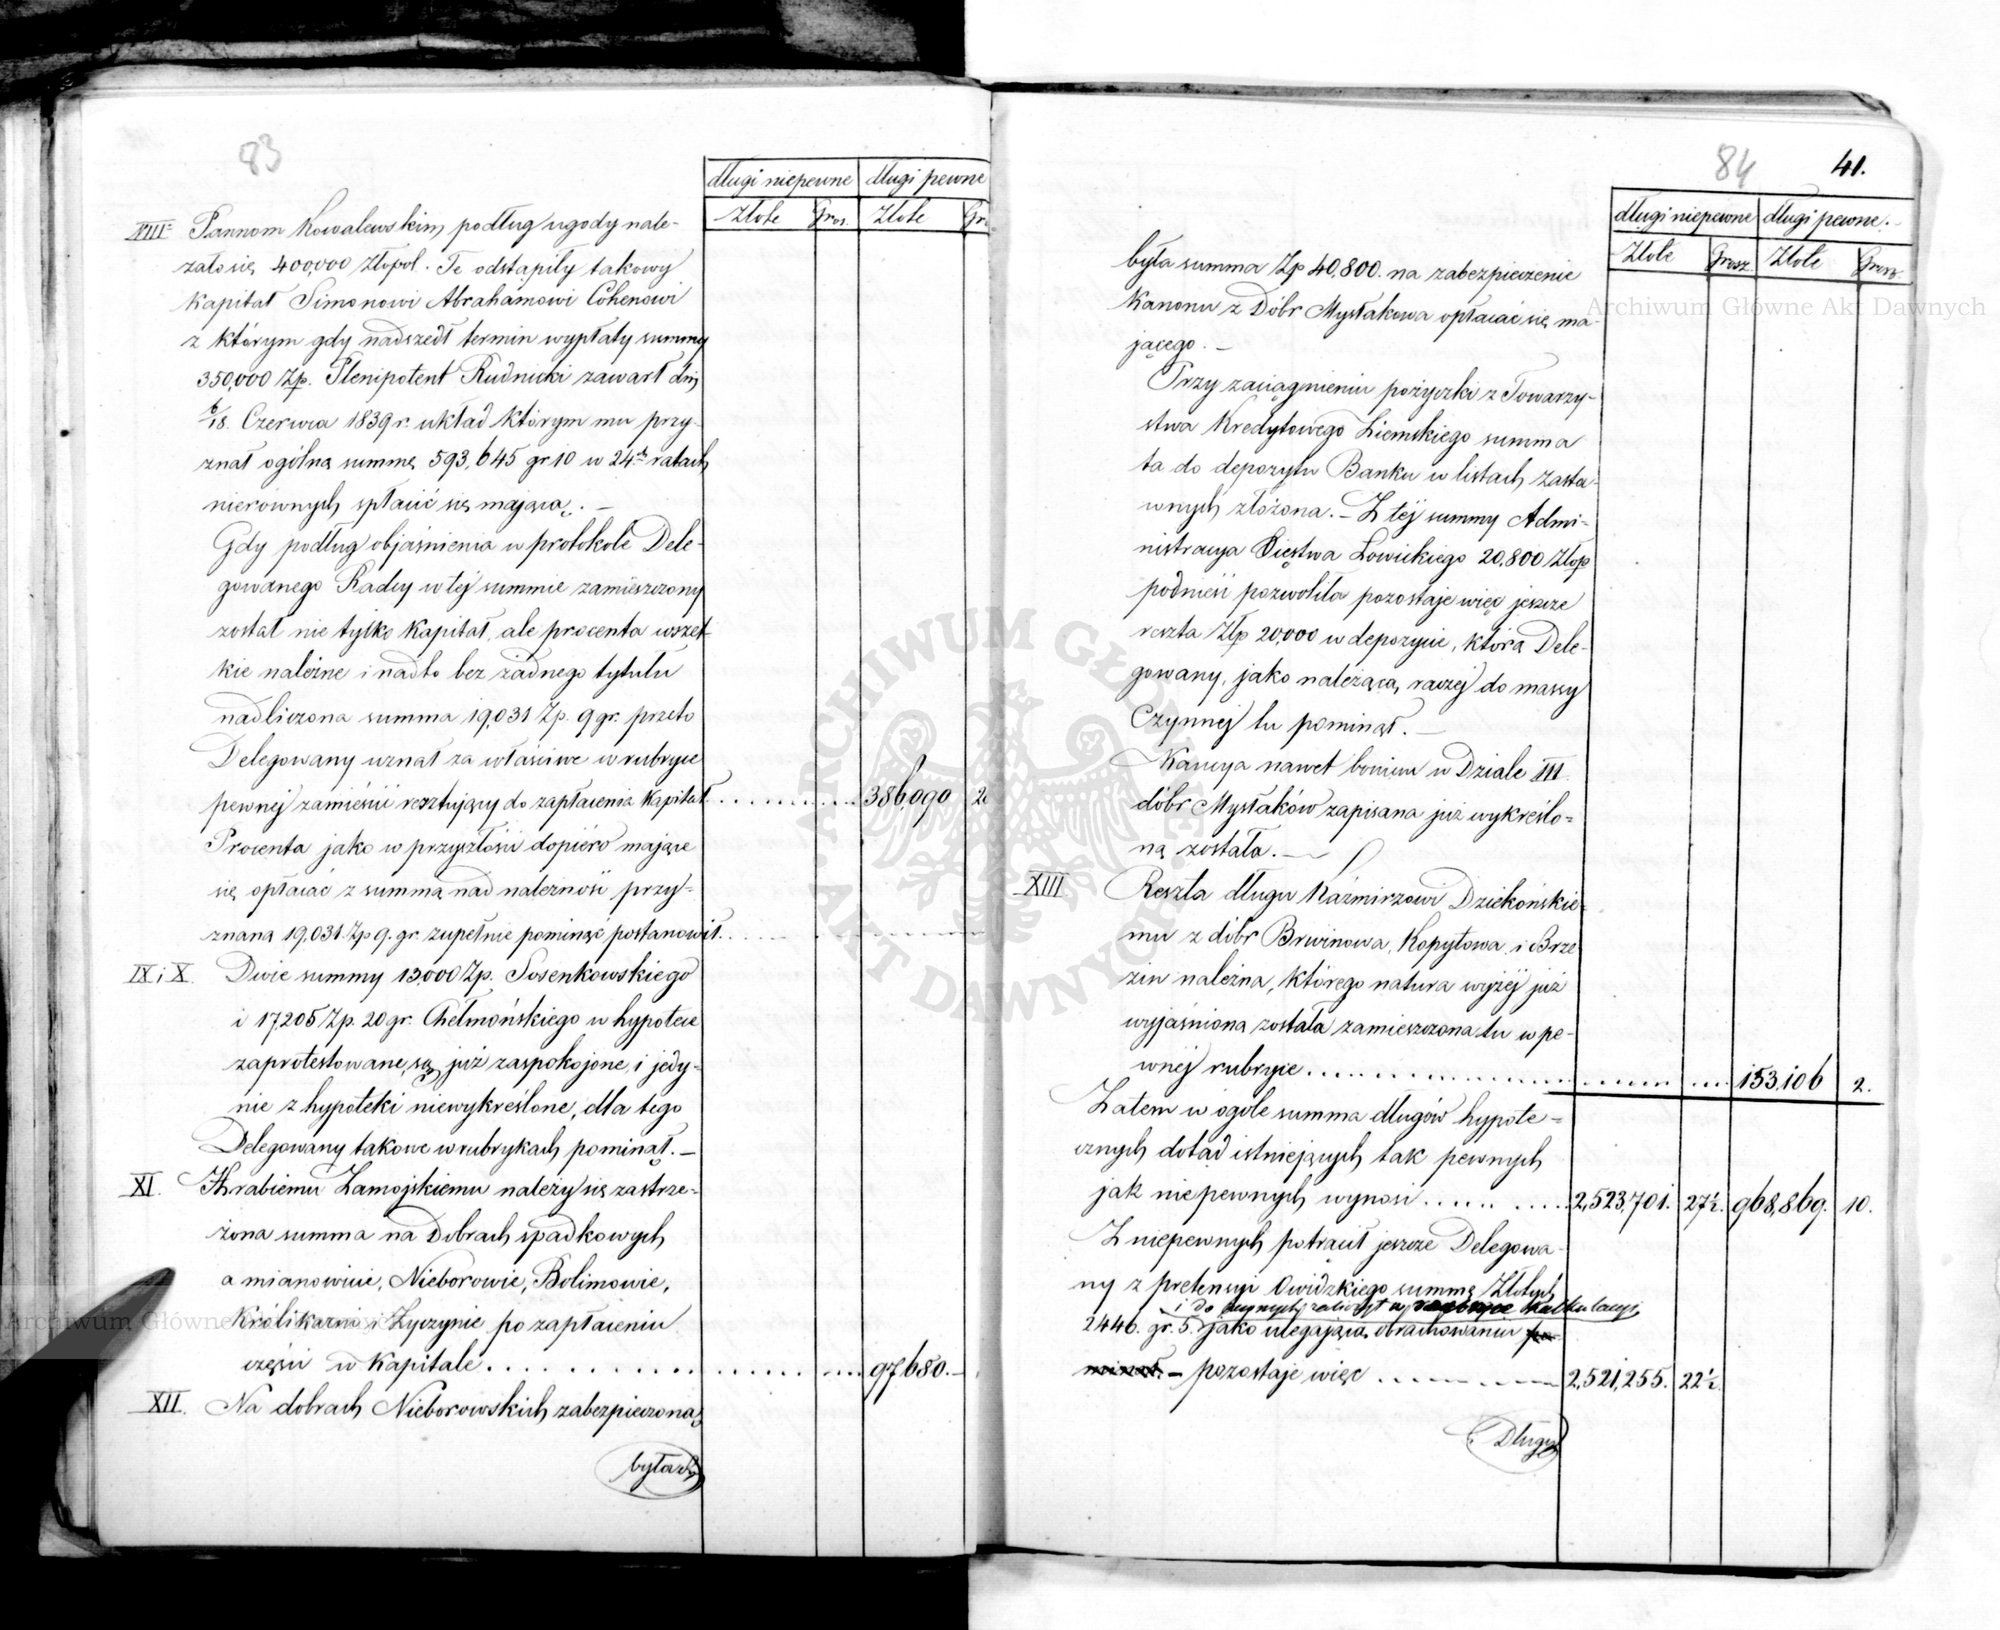 83
długi niepewne długi pewne
Złote Gros. Złote Gr.
VIII Pannom Kowalewskim podług ugody nale-
żało się 400,000 Złopol. Te odstąpiły takowy
kapitał Simonowi Abrahamowi Cohenowi
z którym gdy nadszedł termin wypłaty summy
350,000 Zp. Plenipotent Rudnicki zawarł dnia
6/18. Czerwca 1839 r. układ którym mu przy-
znał ogólną summę 593,645 gr 10 w 24ch ratach
nierównych spłacić się mającą. —
Gdy podług objaśnienia w protokole Dele-
gowanego Radcy w tej summie zamieszczony
został nie tylko kapitał, ale procenta wszel-
kie należne i nadto bez żadnego tytułu
nadliczona summa 19,031 Zp. 9 gr. przeto
Delegowany uznał za właściwe w rubryce
pewnej zamieścić resztujący do zapłacenia kapitał ........ 386,090 2
Procenta jako w przyszłości dopiero mające
się opłacać z summą nad należność przy-
znaną 19,031 Zp 9. gr. zupełnie pominąć postanowił.
IX i X. Dwie summy 13,000 Zp. Sosenkowskiego
i 17205 Zp. 20 gr. Chełmońskiego w hypotece
zaprotestowane, są już zaspokojone, i jedy-
nie z hypoteki niewykreślone, dla tego
Delegowany takowe w rubrykach pominął. —
XI. Hrabiemu Zamojskiemu należy się zastrze-
żona summa na Dobrach spadkowych
a mianowicie, Nieborowie, Bolimowie,
Królikarni i Zyczynie po zapłaceniu
części w kapitale ........... 97,680. —
XII. Na dobrach Nieborowskich zabezpieczona
była
84 41.
długi niepewne długi pewne.
Złote Grosz Złote Grosz
była summa Zp 40,800. na zabezpieczenie
Kanonu z Dóbr Mysłakowa opłacać się ma-
jącego. —
Przy zaciągnieniu pożyczki z Towarzy-
stwa Kredytowego Ziemskiego summa
ta do depozytu Banku w listach zasta-
wnych złożona. — Z tej summy Admi-
nistracya Xięstwa Łowickiego 20,800 Złop
podnieść pozwoliła pozostaje więc jeszcze
reszta Złp 20,000 w depozycie, którą Dele-
gowany, jako należącą, raczej do massy
Czynnej tu pominął. —
Kaucya nawet boniem w Dziale III
dóbr Mysłaków zapisana już wykreślo-
ną została. —
XIII Reszta długu Kaźmirzowi Dziekońskie-
mu z dóbr Brwinowa, Kopytowa i Brze
zin należna, którego natura wyżej już
wyjaśniona została zamieszczona tu w pe-
wnej rubryce ........... 153,106 2.
Zatem w ogóle summa długów hypote-
cznych dotąd istniejących tak pewnych
jak niepewnych wynosi ........ 2,523,701. 27½. 968,869. 10.
Z niepewnych potrącił jeszcze Delegowa-
ny z pretensyi Owidzkiego summę Złotych
i do kalkulacyi
2446. gr. 5. jako ulegającą obrachowaniu
— pozostaje więc ........ 2,521,255. 22½.
Długi
Archiwum Główne Akt Dawnych
Archiwum Główne
ARCHIWUM GŁÓWNE AKT DAWNYCH